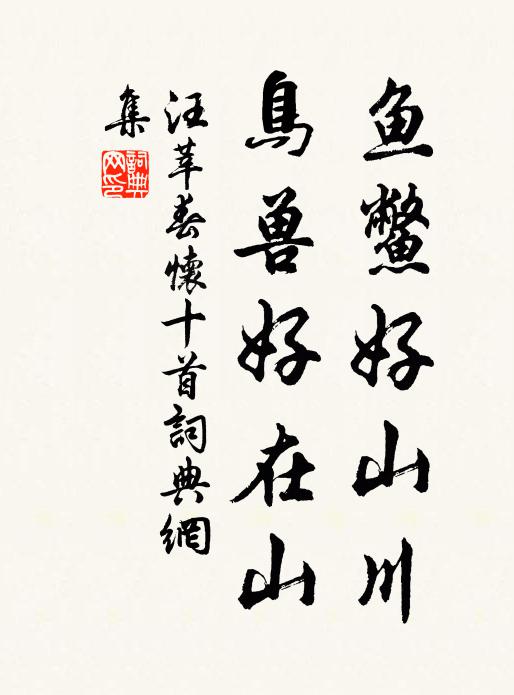 鱼鳖好山川
鳥兽好在山
汪莘春懷十首詞典網
集
詞典网印